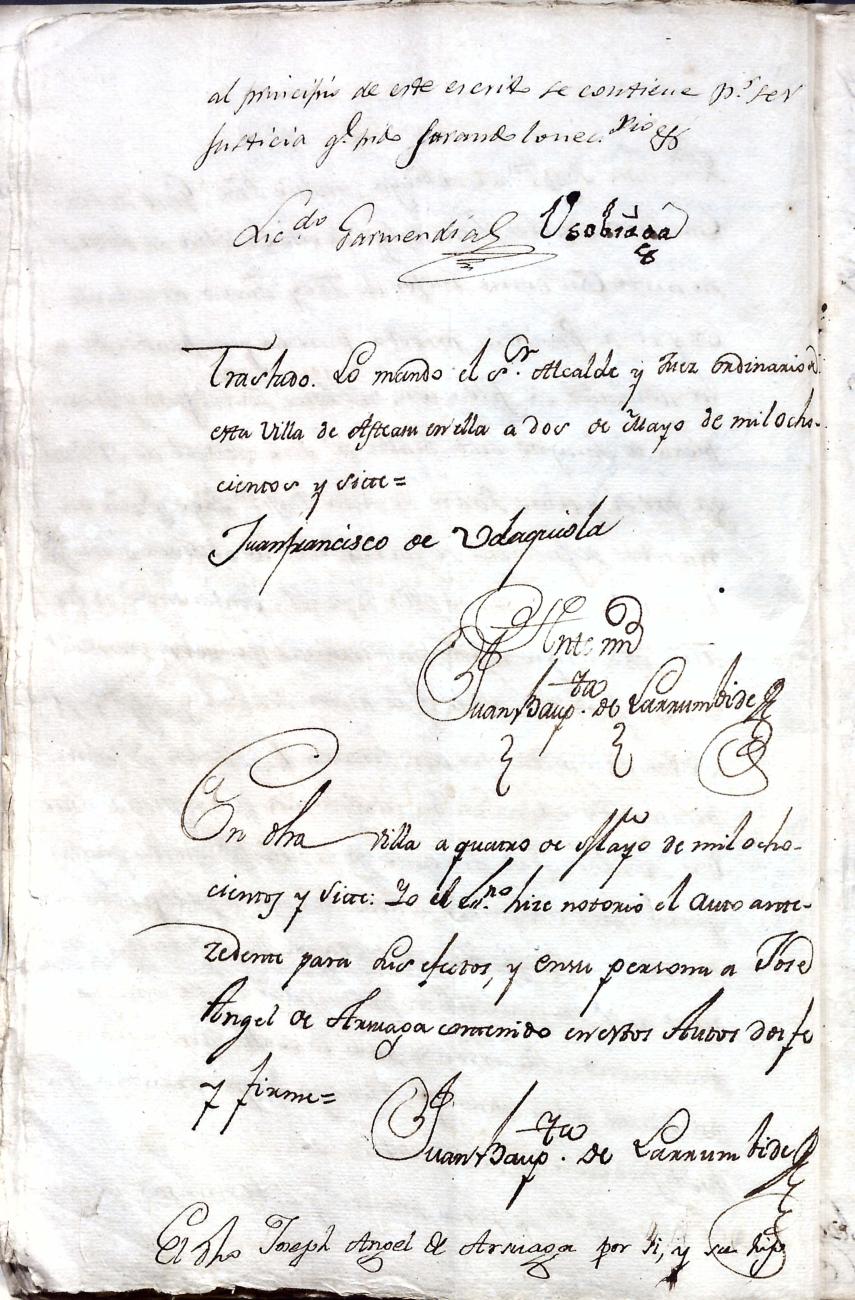 al principio de este escrito se contiene p.r ser
Justicia q.e pido Jurando lo nec.rio &
Lic.do Garmendia Usobiaga
Traslado. Lo mando el s.r Alcalde y Juez ordinario d
esta Villa de Asteasu en ella a dos de Mayo de mil ocho-
cientos y siete=
Juan francisco de Udaquiola
Ante mi
Juan Baup.ta de Larrumbide
En dha Villa a quatro de Mayo de mil ocho-
cientos y siete: Yo el Ss.no hize notorio el Auto ante-
zedente para sus efectos, y en su persona a Josed
Angel de Arsuaga contenido en estos Autos doi fe
y firme=
Juan Baup.ta de Larrumbide
El dho Joseph Angel de Arsuaga por si, y su hijo